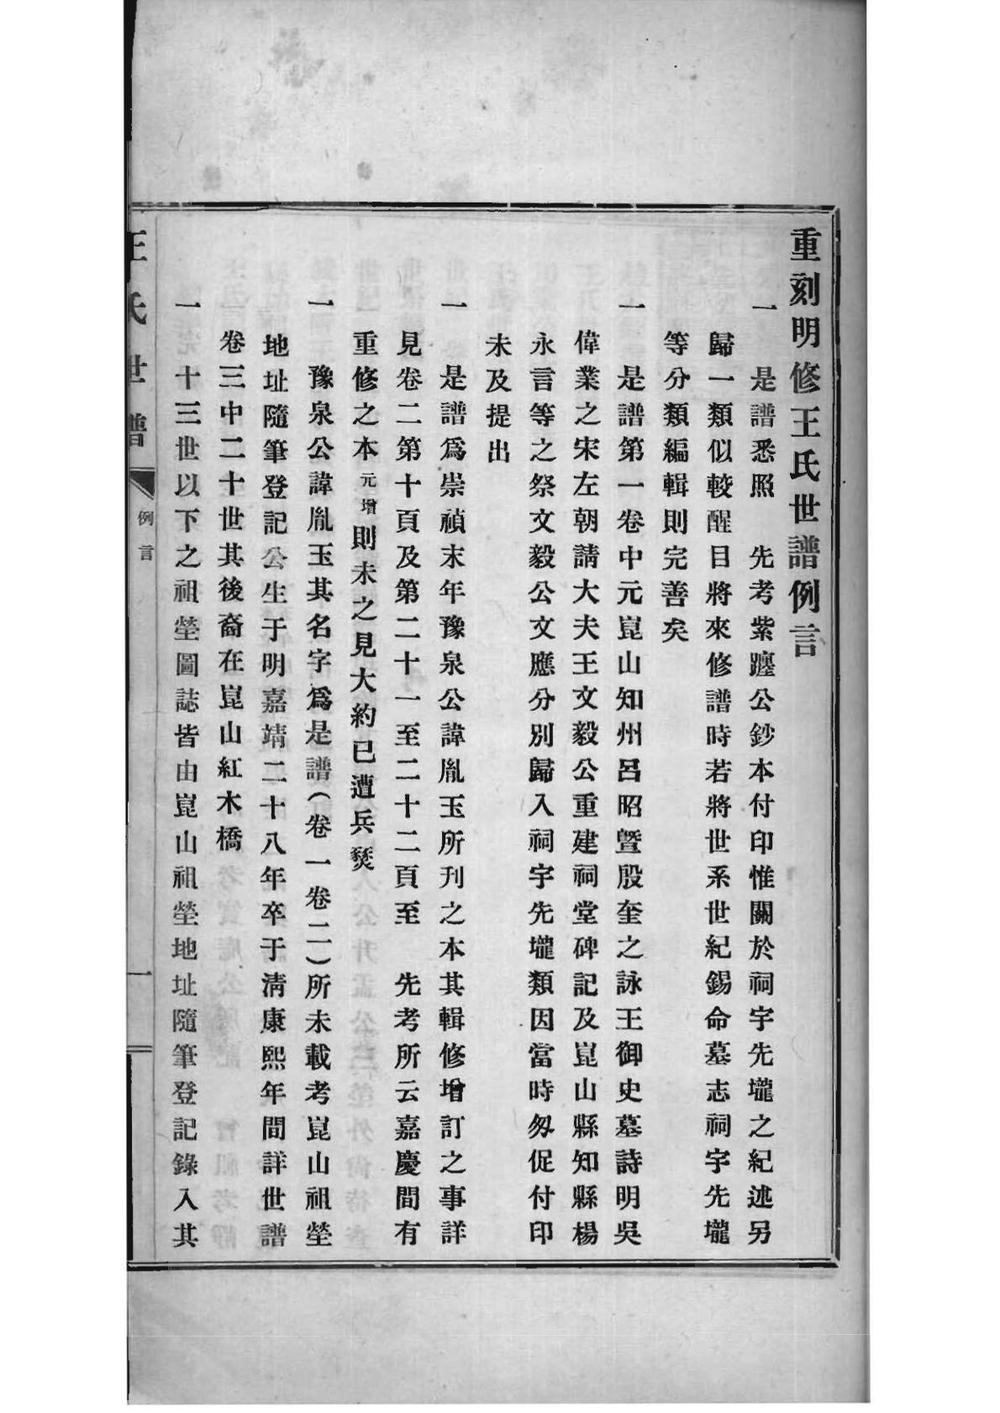 重刻明修王氏世譜例言
一　是譜悉照　先考紫躔公鈔本付印惟關於祠宇先壠之紀述另
歸一類似較醒目將來修譜時若將世系世紀錫命墓志祠宇先壠
等分類編輯則完善矣
一　是譜第一卷中元崑山知州呂昭曁殷奎之詠王御史墓詩明吳
偉業之宋左朝請大夫王文毅公重建祠堂碑記及崑山縣知縣楊
永言等之祭文毅公文應分別歸入祠宇先壠類因當時匆促付印
未及提出
一　是譜爲崇禎末年豫泉公諱胤玉所刋之本其輯修增訂之事詳
見卷二第十頁及第二十一至二十二頁至　先考所云嘉慶間有
重修之本元增則未之見大約已遭兵燹
一　豫泉公諱胤玉其名字爲是譜（卷一卷二）所未載考崑山祖塋
地址隨筆登記公生于明嘉靖二十八年卒于淸康熙年間詳世譜
卷三中二十世其後裔在崑山紅木橋
一　十三世以下之祖塋圖誌皆由崑山祖塋地址隨筆登記錄入其
王氏世譜
例言
一